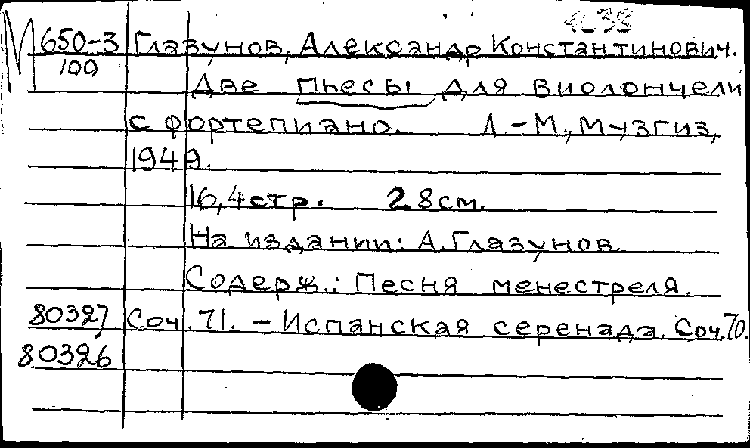 М 650-3 Глазунов, Александр Константинович.
100 Две пьесы для виолончели
с фортепиано. Л.-М., Музгиз,
1949.
16,4 стр. 28 см.
На издании: А. Глазунов.
Содерж.: Песня менестреля.
80327 Соч. 71. – Испанская серенада. Соч. 70.
80326